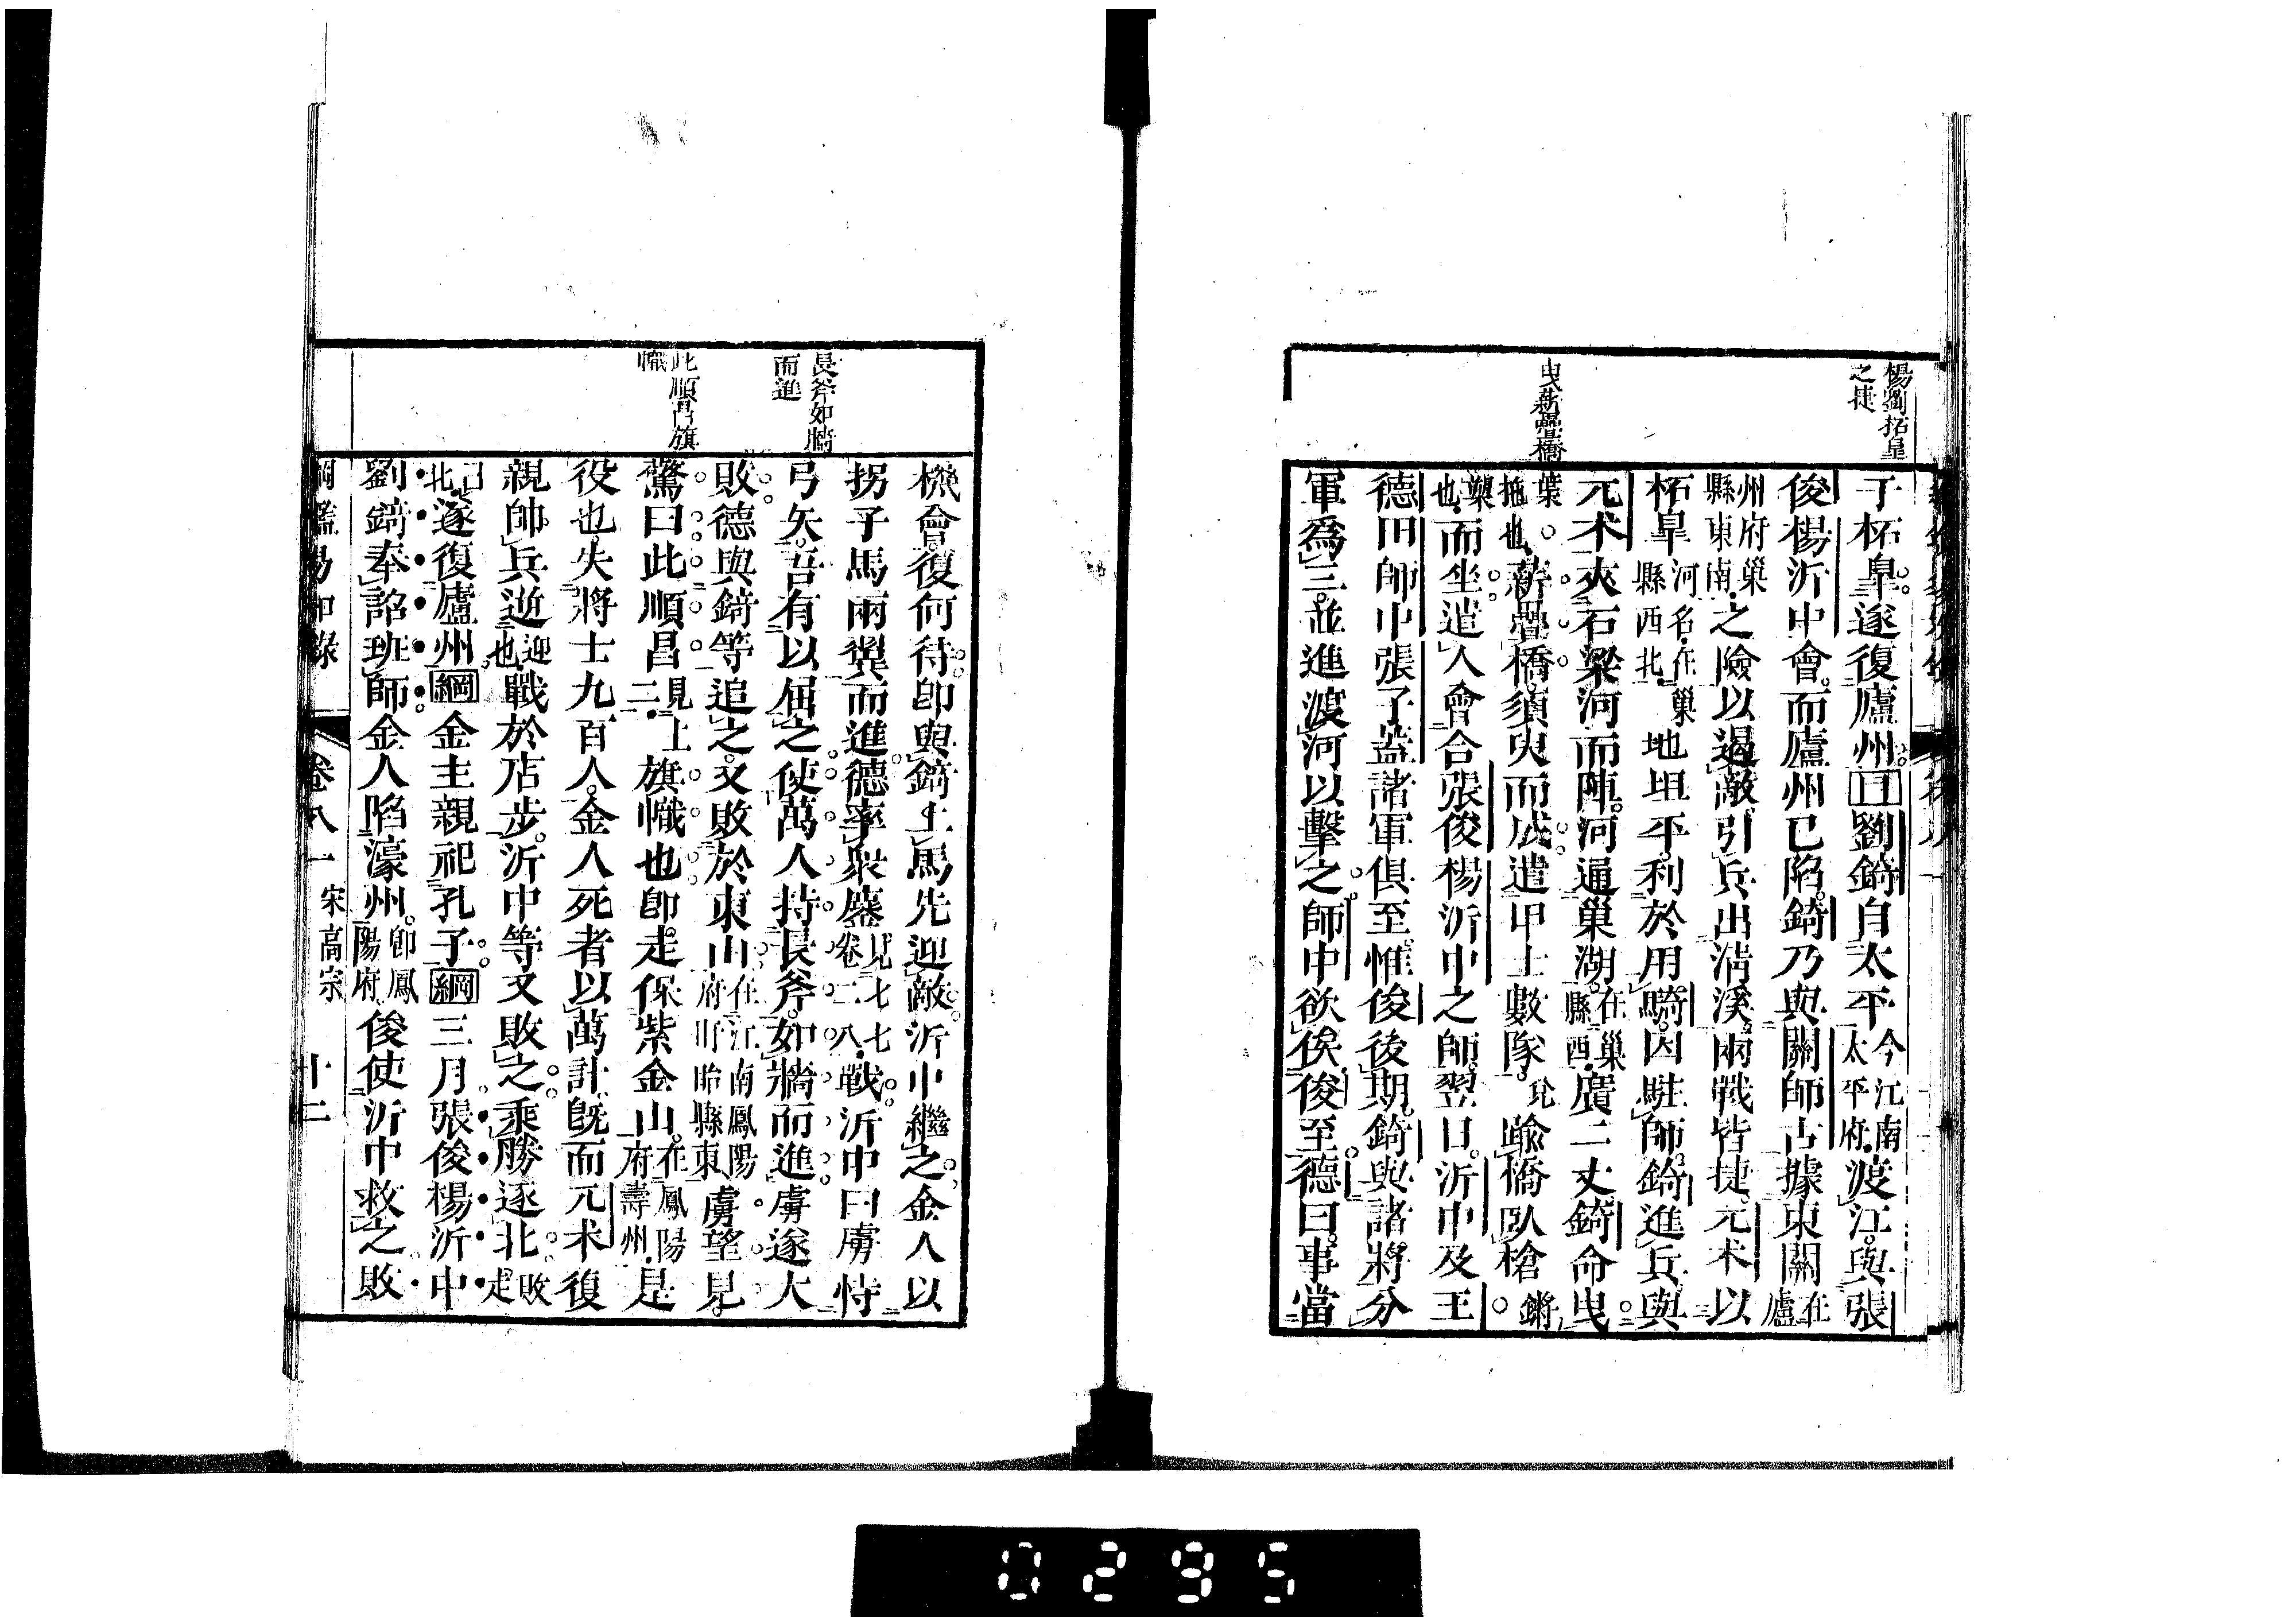 楊劉拓臯
之捷
曳薪疊橋
于柘臯遂復廬州目劉錡自太平今江南太平府渡江與張
俊楊沂中會而廬州已陷錡乃與關師古據東關在廬
州府巢縣東南之險以遏敵引兵出淸溪兩戰皆捷兀术以
柘臯河名在巢縣西北地坦平利於用騎因駐師錡進兵與
兀术夾石梁河而陣河通巢湖在巢縣西廣二丈錡命曳
葉拖也薪疊橋須臾而成遣甲士數隊兌踰橋臥槍鏘
槊也而坐遣人會合張俊楊沂中之師翌日沂中及王
德田師中張子蓋諸軍俱至惟俊後期錡與諸將分
軍爲三並進渡河以擊之師中欲俟俊至德曰事當
長斧如牆
而進
此順昌旗
幟
機會復何待卽與錡上馬先迎敵沂中繼之金人以
拐子馬兩翼而進德率衆鏖見七七卷二八戰沂中曰虜恃
弓矢吾有以屈之使萬人持長斧如牆而進虜遂大
敗德與錡等追之又敗於東山在江南鳳陽府盱眙縣東虜望見
驚曰此順昌見上二旗幟也卽走保紫金山在鳳陽府壽州是
役也失將士九百人金人死者以萬計旣而兀术復
親帥兵逆迎也戰於店步沂中等又敗之乘勝逐北敗走
曰北遂復廬州綱金主親祀孔子綱三月張俊楊沂中
劉錡奉詔班師金人陷濠州卽鳳陽府俊使沂中救之敗
綱鑑易知錄 卷八一 宋高宗 十二